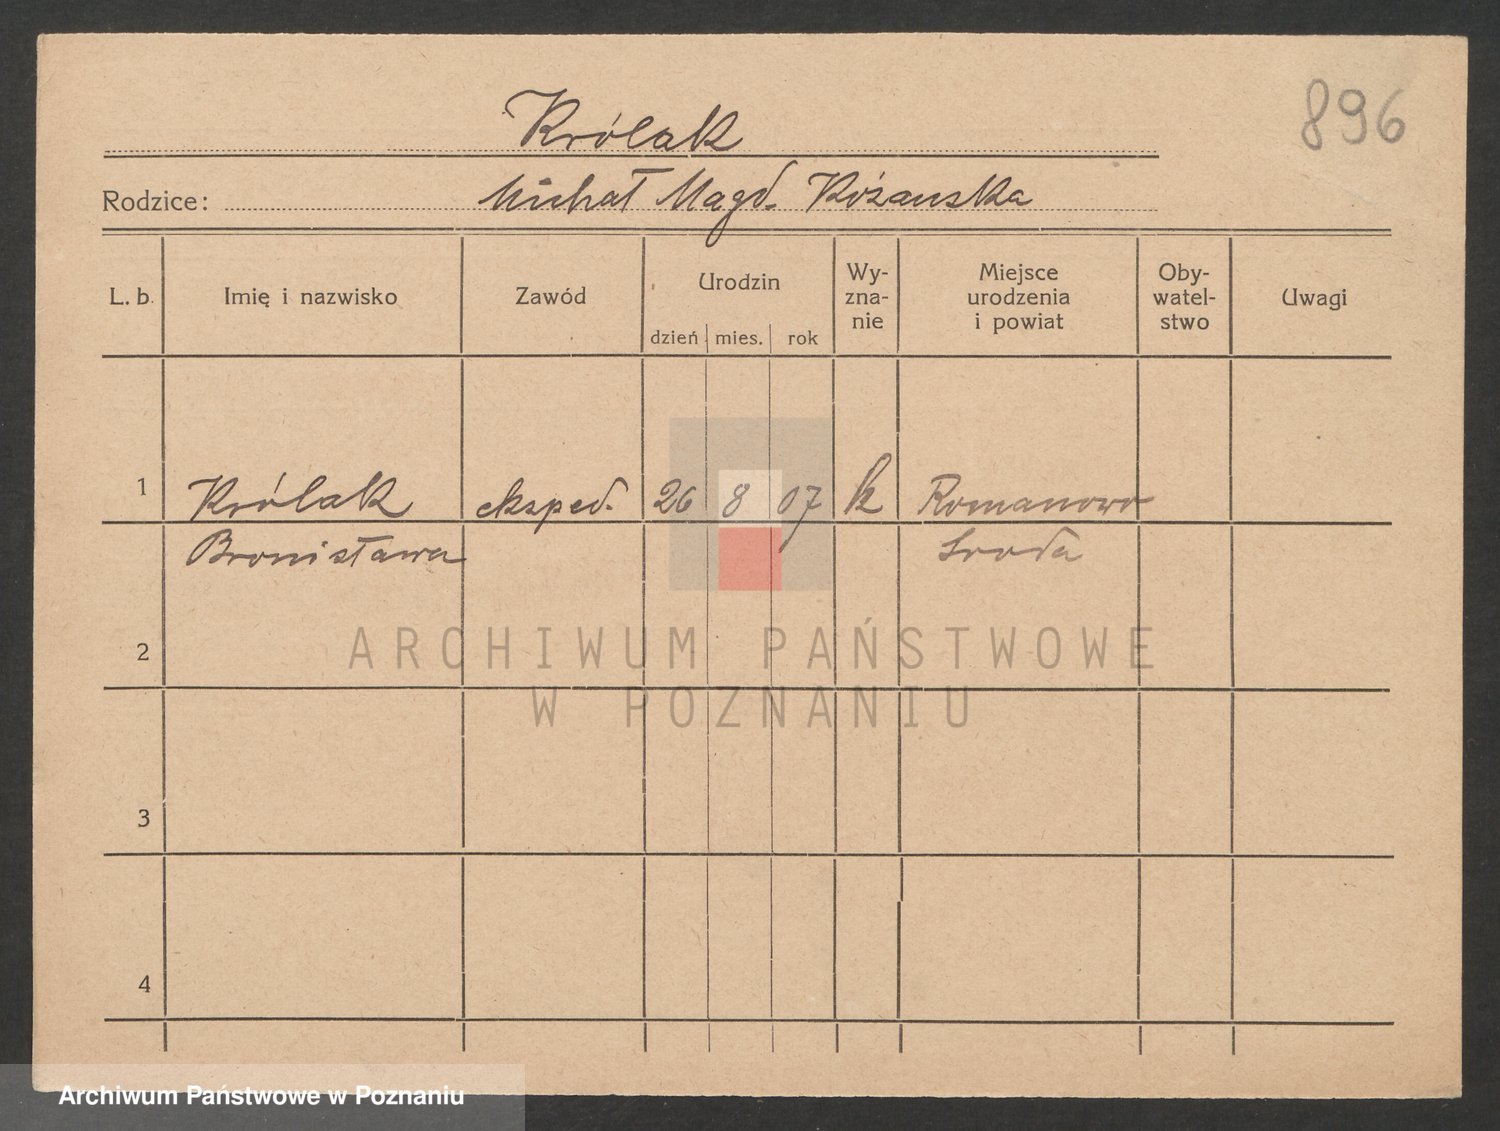 896
Królak
Rodzice: Michał Magd. Kóżauska
L. b. Imię i nazwisko Zawód Urodzin Wy- Miejsce Oby- Uwagi
zna- urodzenia watel-
nie i powiat stwo
dzień mies. rok
1 Królak eksped. 26 8 07 k Romanowo
Bronisława Sroda
2
ARCHIWUM PAŃSTWOWE
W POZNANIU
3
4
Archiwum Państwowe w Poznaniu